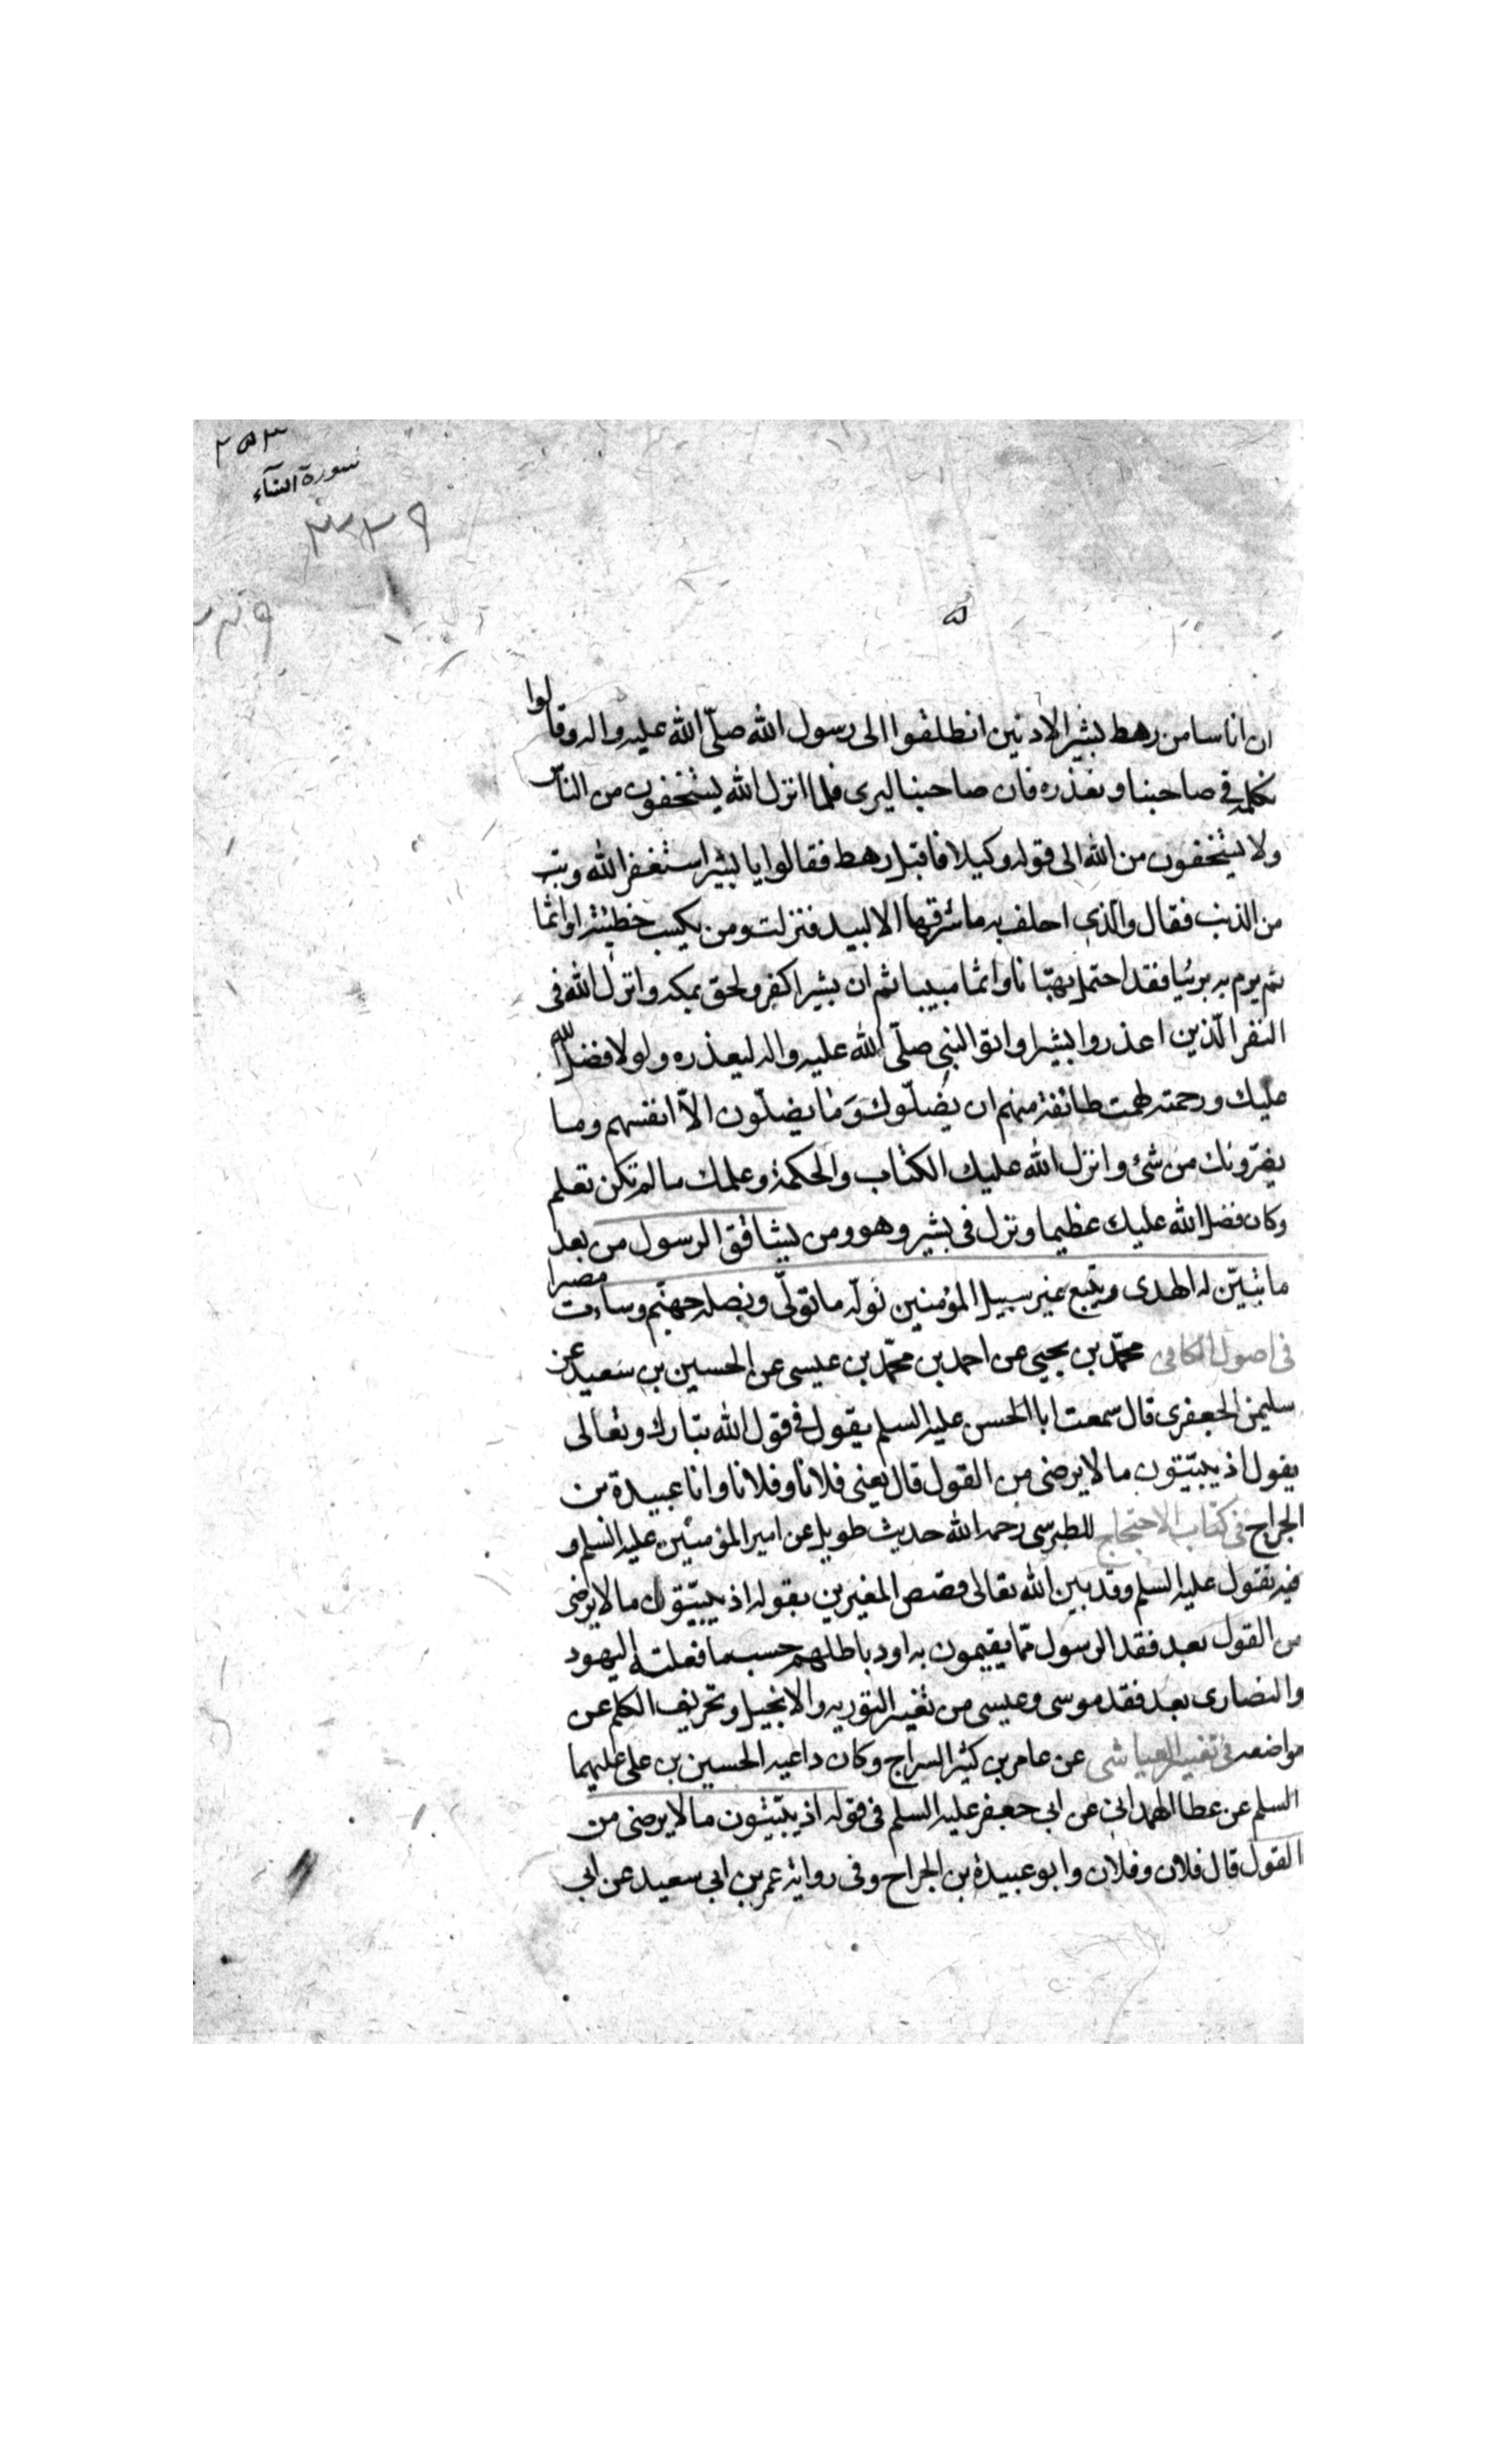 ٢٥٣
سورة النساء
٣٢٩
ان اناسا من رهط بشير الادنين انطلقوا الى رسول الله صلّى الله عليه واله وقالوا
نكلمه في صاحبنا ونعذره فان صاحبنا لبرى فلما انزل الله يستخفون من الناس
ولا يستخفون من الله الى قوله وكيلا فاقبل رهط فقالوا يا بشير استغفر الله وتب
من الذنب فقال والذي احلف به ما سرقها الا لبيد فنزلت ومن يكسب خطيئة او اثما
ثم يرم به بريئا فقد احتمل بهتانا واثما مبينا ثم ان بشيرا كفر ولحق بمكه وانزل الله فى
النفر الّذين اعذروا بشيرا واتوا النبي صلّى الله عليه واله ليعذره ولولا فضل الله
عليك ورحمته لهمت طائفة منهم ان يضلّوك وَمٰا يضلّون الاّ انفسهم وما
يضرّونك من شئ وانزل الله عليك الكتاب والحكمة وعلمك ما لم تكن تعلم
وكان فضل الله عليك عظيما ونزل فى بشير وهو ومن يشاقق الرسول من بعد
ما تبيّن له الهدى ويتبع غير سبيل المؤمنين نولّه ما تولّى ونصله جهنّم وساءت مصيرا
فى اصول الكافى محمّد بن يحيى عن احمد بن محمّد بن عيسى عن الحسين بن سعيد عن
سليمن الجعفرى قال سمعت ابا الحسن عليه السلم يقول في قول الله تبارك وتعالى
يقول اذ يبيّتون ما لا يرضى من القول قال يعنى فلانا وفلانا وابا عبيدة بن
الجراح فى كتاب الاحتجاج للطبرسى رحمه الله حديث طويل عن امير المؤمنين عليه السلم و
فيه يقول عليه السلم وقد بين الله تعالى قصص المغيرين بقوله اذ يبيّتون ما لا يرضى
من القول بعد فقد الرسول ممّا يقيمون به اود باطلهم حسب ما فعلته اليهود
والنصارى بعد فقد موسى وعيسى من تغيير التوريه والانجيل وتحريف الكلم عن
مواضعه فى تفسير العياشى عن عامر بن كثير السراج وكان داعيه الحسين بن على عليهما
السلم عن عطا الهمدانى عن ابى جعفر عليه السلم فى قوله اذ يبيّتون ما لا يرضى من
القول قال فلان وفلان وابو عبيدة بن الجراح وفى رواية عمر بن ابى سعيد عن ابى